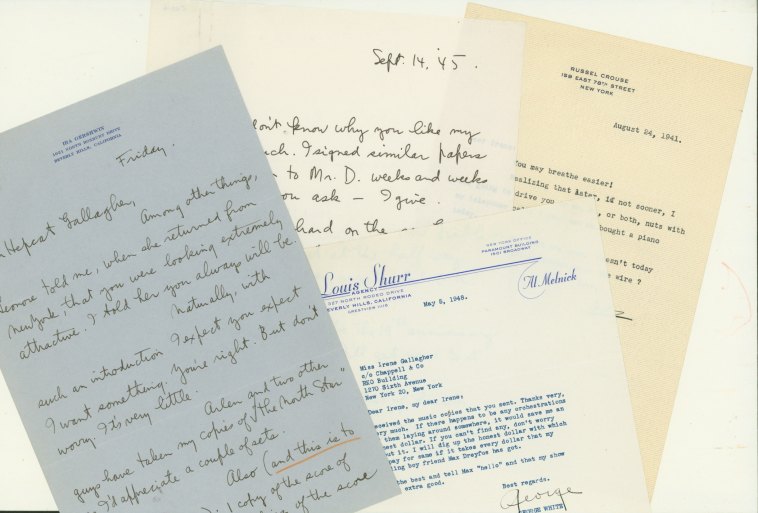 IRA GERSHWIN
1021 NORTH ROXBURY DRIVE
BEVERLY HILLS, CALIFORNIA
Friday.
Hepcat Gallagher,
Among other things,
Leonore told me, when she returned from
New York, that you were looking extremely
attractive. I told her you always will be.
Naturally, with
such an introduction I expect you expect
I want something. You're right. But don't
worry. It's very little.
Arlen and two other
guys have taken my copies of "the North Star"
I'd appreciate a couple of sets.
Also (and this is to
1 copy of the score of
of the score
Sept. 14, '45.
don't know why you like my
such. I signed similar papers
to Mr. D. weeks and weeks
you ask — I give.
hard on the
RUSSEL CROUSE
159 EAST 78TH STREET
NEW YORK
August 24, 1941.
You may breathe easier!
ealizing that later, if not sooner, I
drive you
, or both, nuts with
bought a piano
esn't today
e wire ?
Louis Shurr
AGENCY
327 NORTH RODEO DRIVE
BEVERLY HILLS, CALIFORNIA
CRESTVIEW
NEW YORK OFFICE
PARAMOUNT BUILDING
1501 BROADWAY
Al Melnick
May 5, 1948.
Miss Irene Gallagher
c/o Chappell & Co
RKO Building
1270 Sixth Avenue
New York 20, New York
Dear Irene, my dear Irene:
eceived the music copies that you sent. Thanks very,
ery much. If there happens to be any orchestrations
them laying around somewhere, it would save me an
est dollar. If you can't find any, don't worry
ut it. I will dig up the honest dollar with which
pay for same if it takes every dollar that my
ling boy friend Max Dreyfus has got.
the best and tell Max "hello" and that my show
extra good.
Best regards,
George
GEORGE WHITE